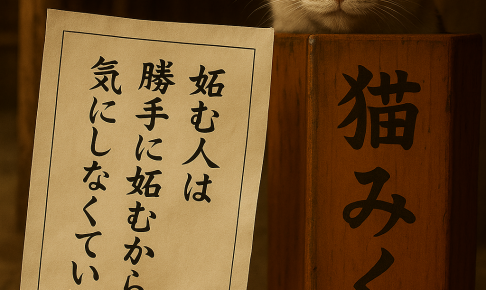 妬む人は
勝手に妬むから
気にしなくてい
猫みく